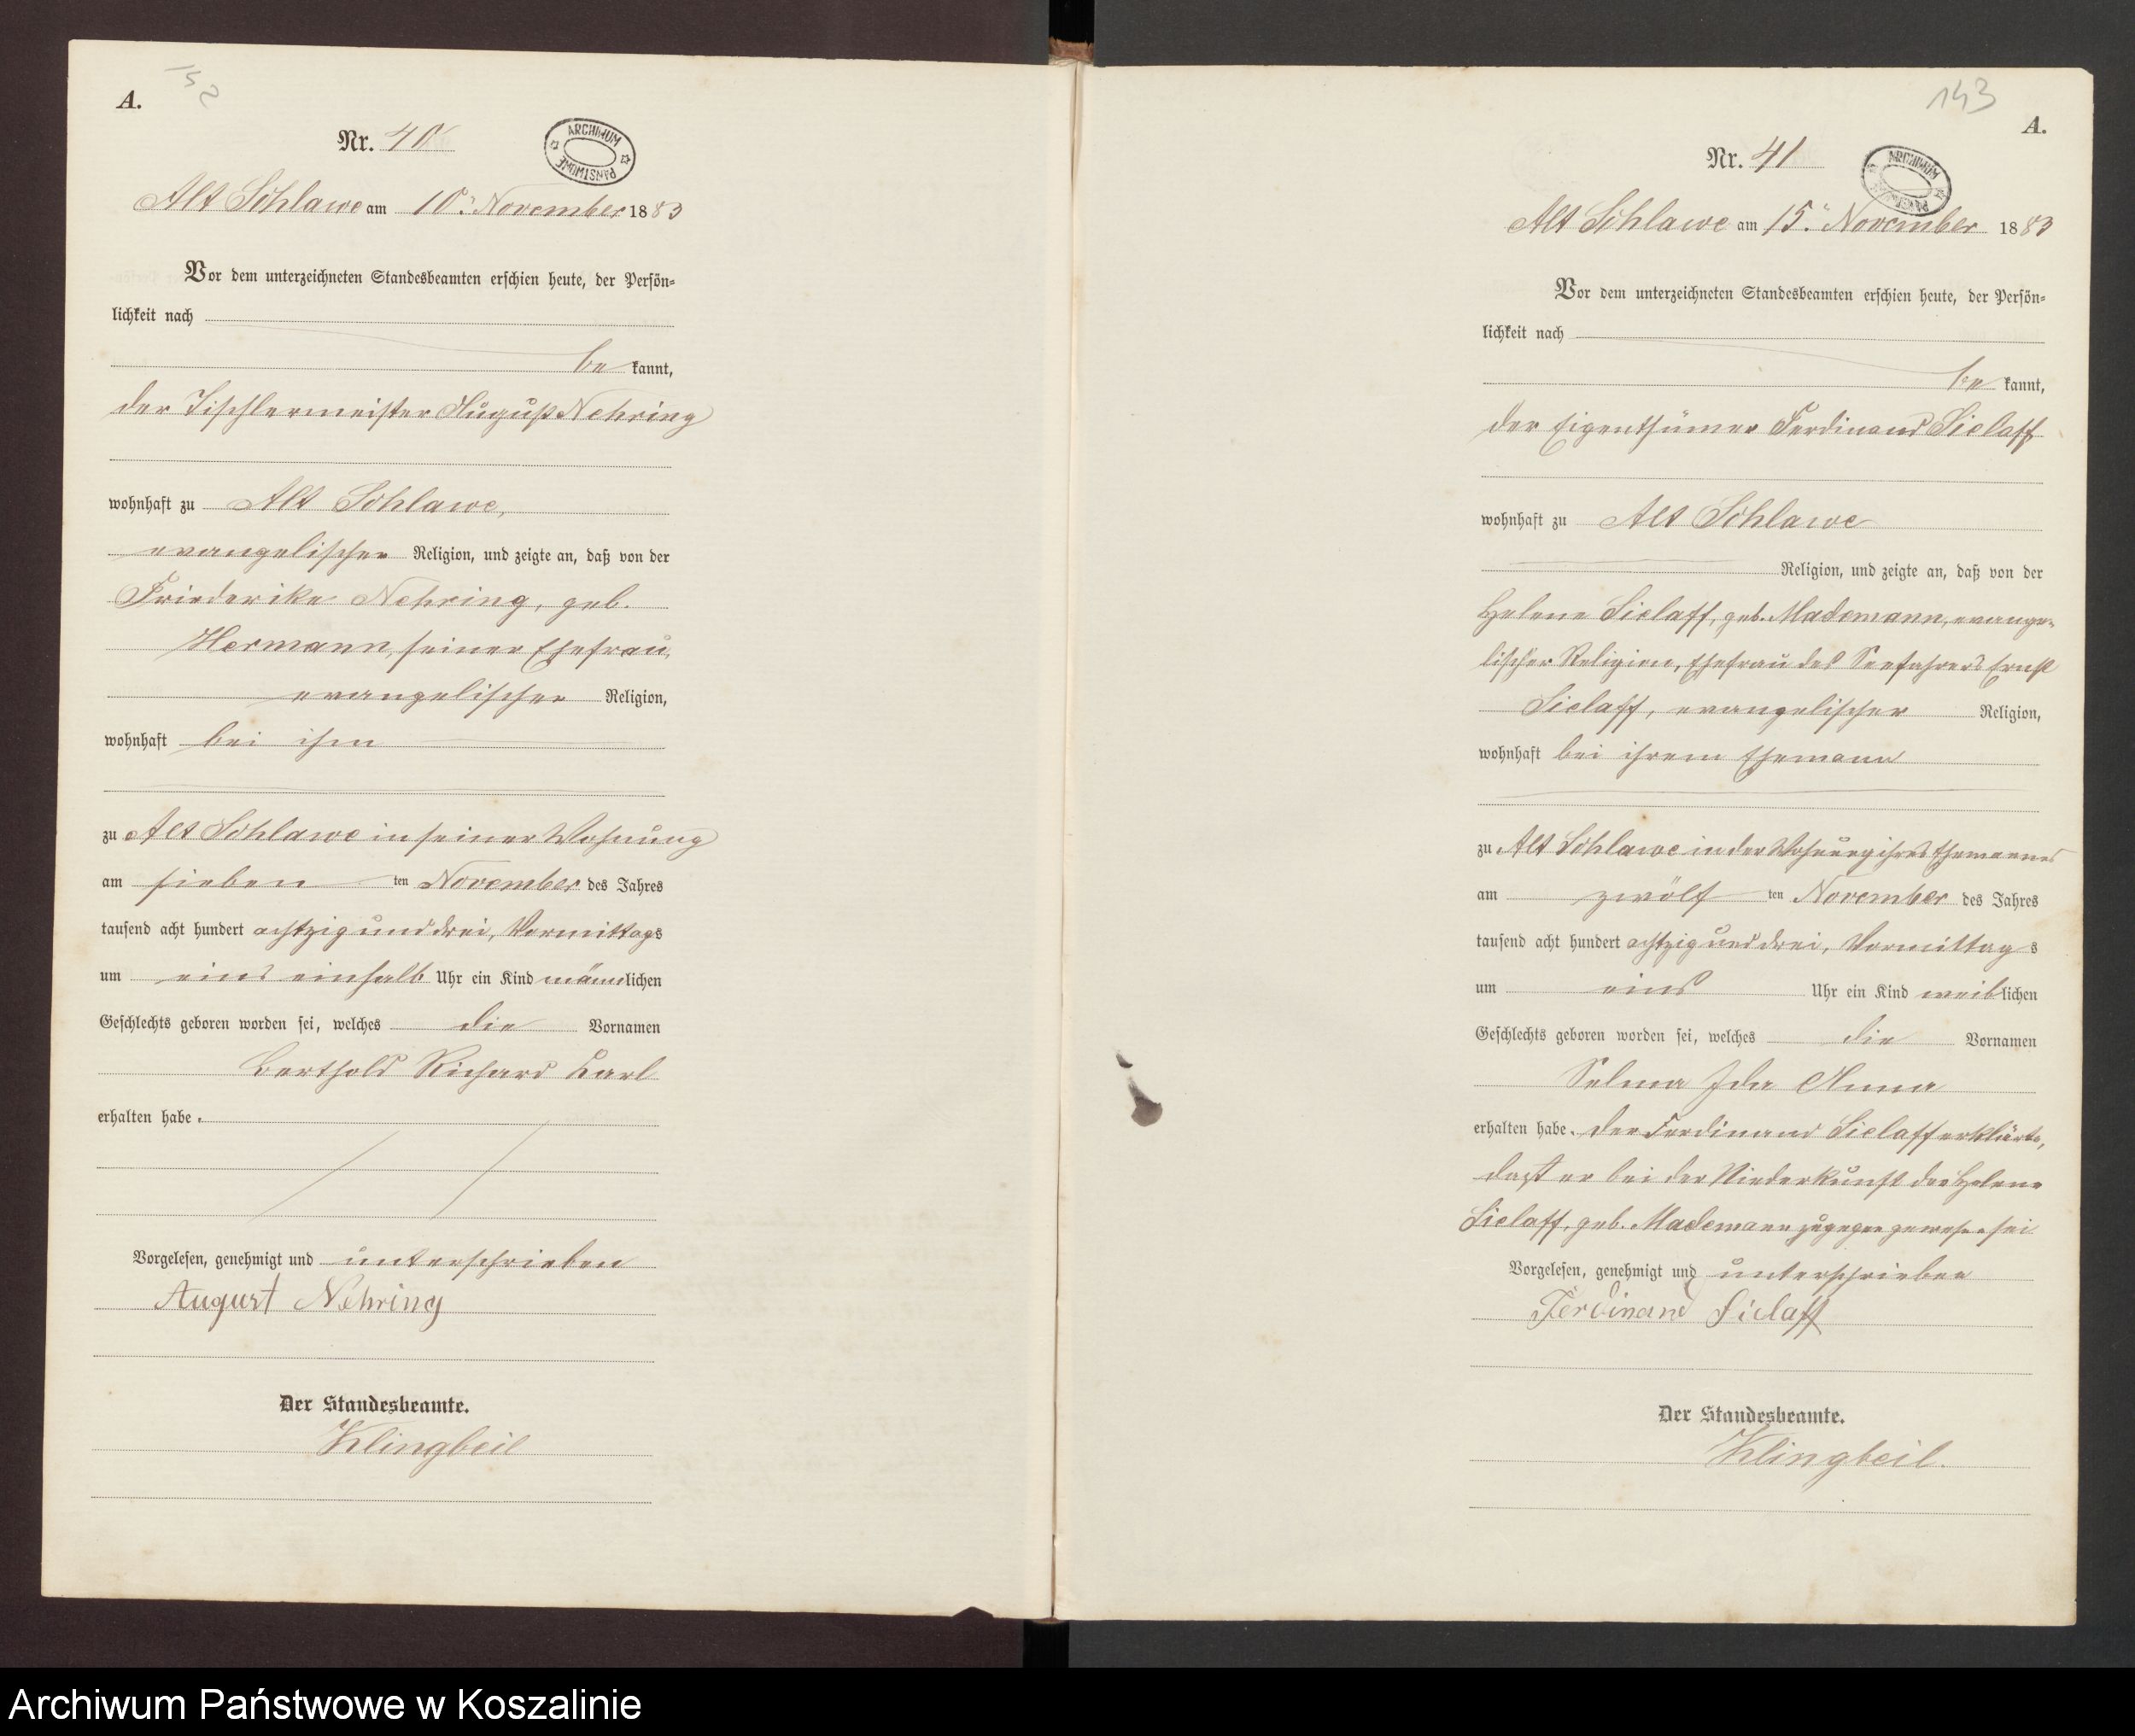 A.
152
Nr. 40
ARCHIWUM PAŃSTWOWE
Alt Schlawe am 10. November 1883
Vor dem unterzeichneten Standesbeamten erschien heute, der Persön=
lichkeit nach
be kannt,
der Tischlermeister August Nehring
wohnhaft zu Alt Schlawe,
evangelischer Religion, und zeigte an, daß von der
Friederike Nehring, geb.
Hermann, seiner Ehefrau,
evangelischer Religion,
wohnhaft bei ihm
zu Alt Schlawe in seiner Wohnung
am sieben ten November des Jahres
tausend acht hundert achtzig und drei, Vormittags
um eins einhalb Uhr ein Kind männlichen
Geschlechts geboren worden sei, welches die Vornamen
Berthold Richard Karl
erhalten habe.
Vorgelesen, genehmigt und unterschrieben
August Nehring
Der Standesbeamte.
Klingbeil
143
A.
Nr. 41
ARCHIWUM PAŃSTWOWE
Alt Schlawe am 15. November 1883
Vor dem unterzeichneten Standesbeamten erschien heute, der Persön=
lichkeit nach
be kannt,
der Eigenthümer Ferdinand Sielaff
wohnhaft zu Alt Schlawe
Religion, und zeigte an, daß von der
Helene Sielaff, geb. Mademann, evange=
lischer Religion, Ehefrau des Seefahrers Ernst
Sielaff, evangelischer Religion,
wohnhaft bei ihrem Ehemann
zu Alt Schlawe in der Wohnung ihres Ehemannes
am zwölf ten November des Jahres
tausend acht hundert achtzig und drei, Vormittag s
um eins Uhr ein Kind weiblichen
Geschlechts geboren worden sei, welches die Vornamen
Selma Ida Anna
erhalten habe. Der Ferdinand Sielaff erklärte,
daß er bei der Niederkunft der Helene
Sielaff, geb. Mademann zugegen gewesen sei
Vorgelesen, genehmigt und unterschrieben
Ferdinand Sielaff
Der Standesbeamte.
Klingbeil.
Archiwum Państwowe w Koszalinie